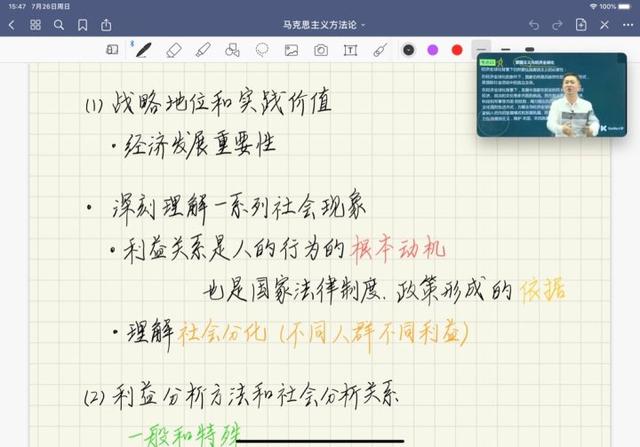 15:47 7月26日周日
100%
马克思主义方法论
(1) 战略地位和实践价值
·经济发展重要性
·深刻理解一系列社会现象
·利益关系是人的行为的根本动机
也是国家法律制度、政策形成的依据
·理解社会分化(不同人群不同利益)
(2) 利益分析方法和社会分析关系
一般和特殊